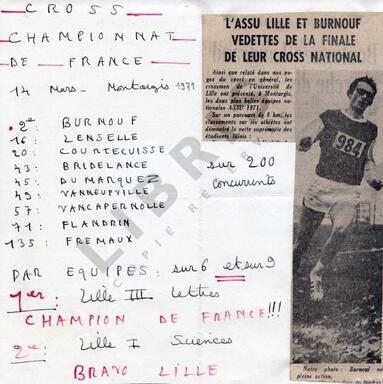 CROSS
CHAMPIONNAT
DE FRANCE
14 Mars - Montargis 1971
2e BURNOUF
16: LENSELLE
20: COURTECUISSE
43: BRIDELANCE
45: DU MARQUEZ
45: VANNEUFVILLE
57: VANCAPERNOLLE
71: FLANDRIN
135: FREMAUX
sur 200
concurrents
PAR EQUIPES: sur 6 et sur 9
1er: Lille III Lettres
CHAMPION DE FRANCE!!!
2e: Lille I Sciences
BRAVO LILLE
L'ASSU LILLE ET BURNOUF
VEDETTES DE LA FINALE
DE LEUR CROSS NATIONAL
Ainsi que relaté dans nos pa-
ges du sport en général, les
crossmen de l'Université de
Lille ont présenté, à Montargis,
les deux plus belles équipes na-
tionales ASSU 1971.
Sur un parcours de 8 km, les
classements sur six athlètes ont
démontré la nette suprématie des
étudiants lillois :
984
Notre photo : Burnouf en
pleine action.
LIBRA
COPIE RÉ